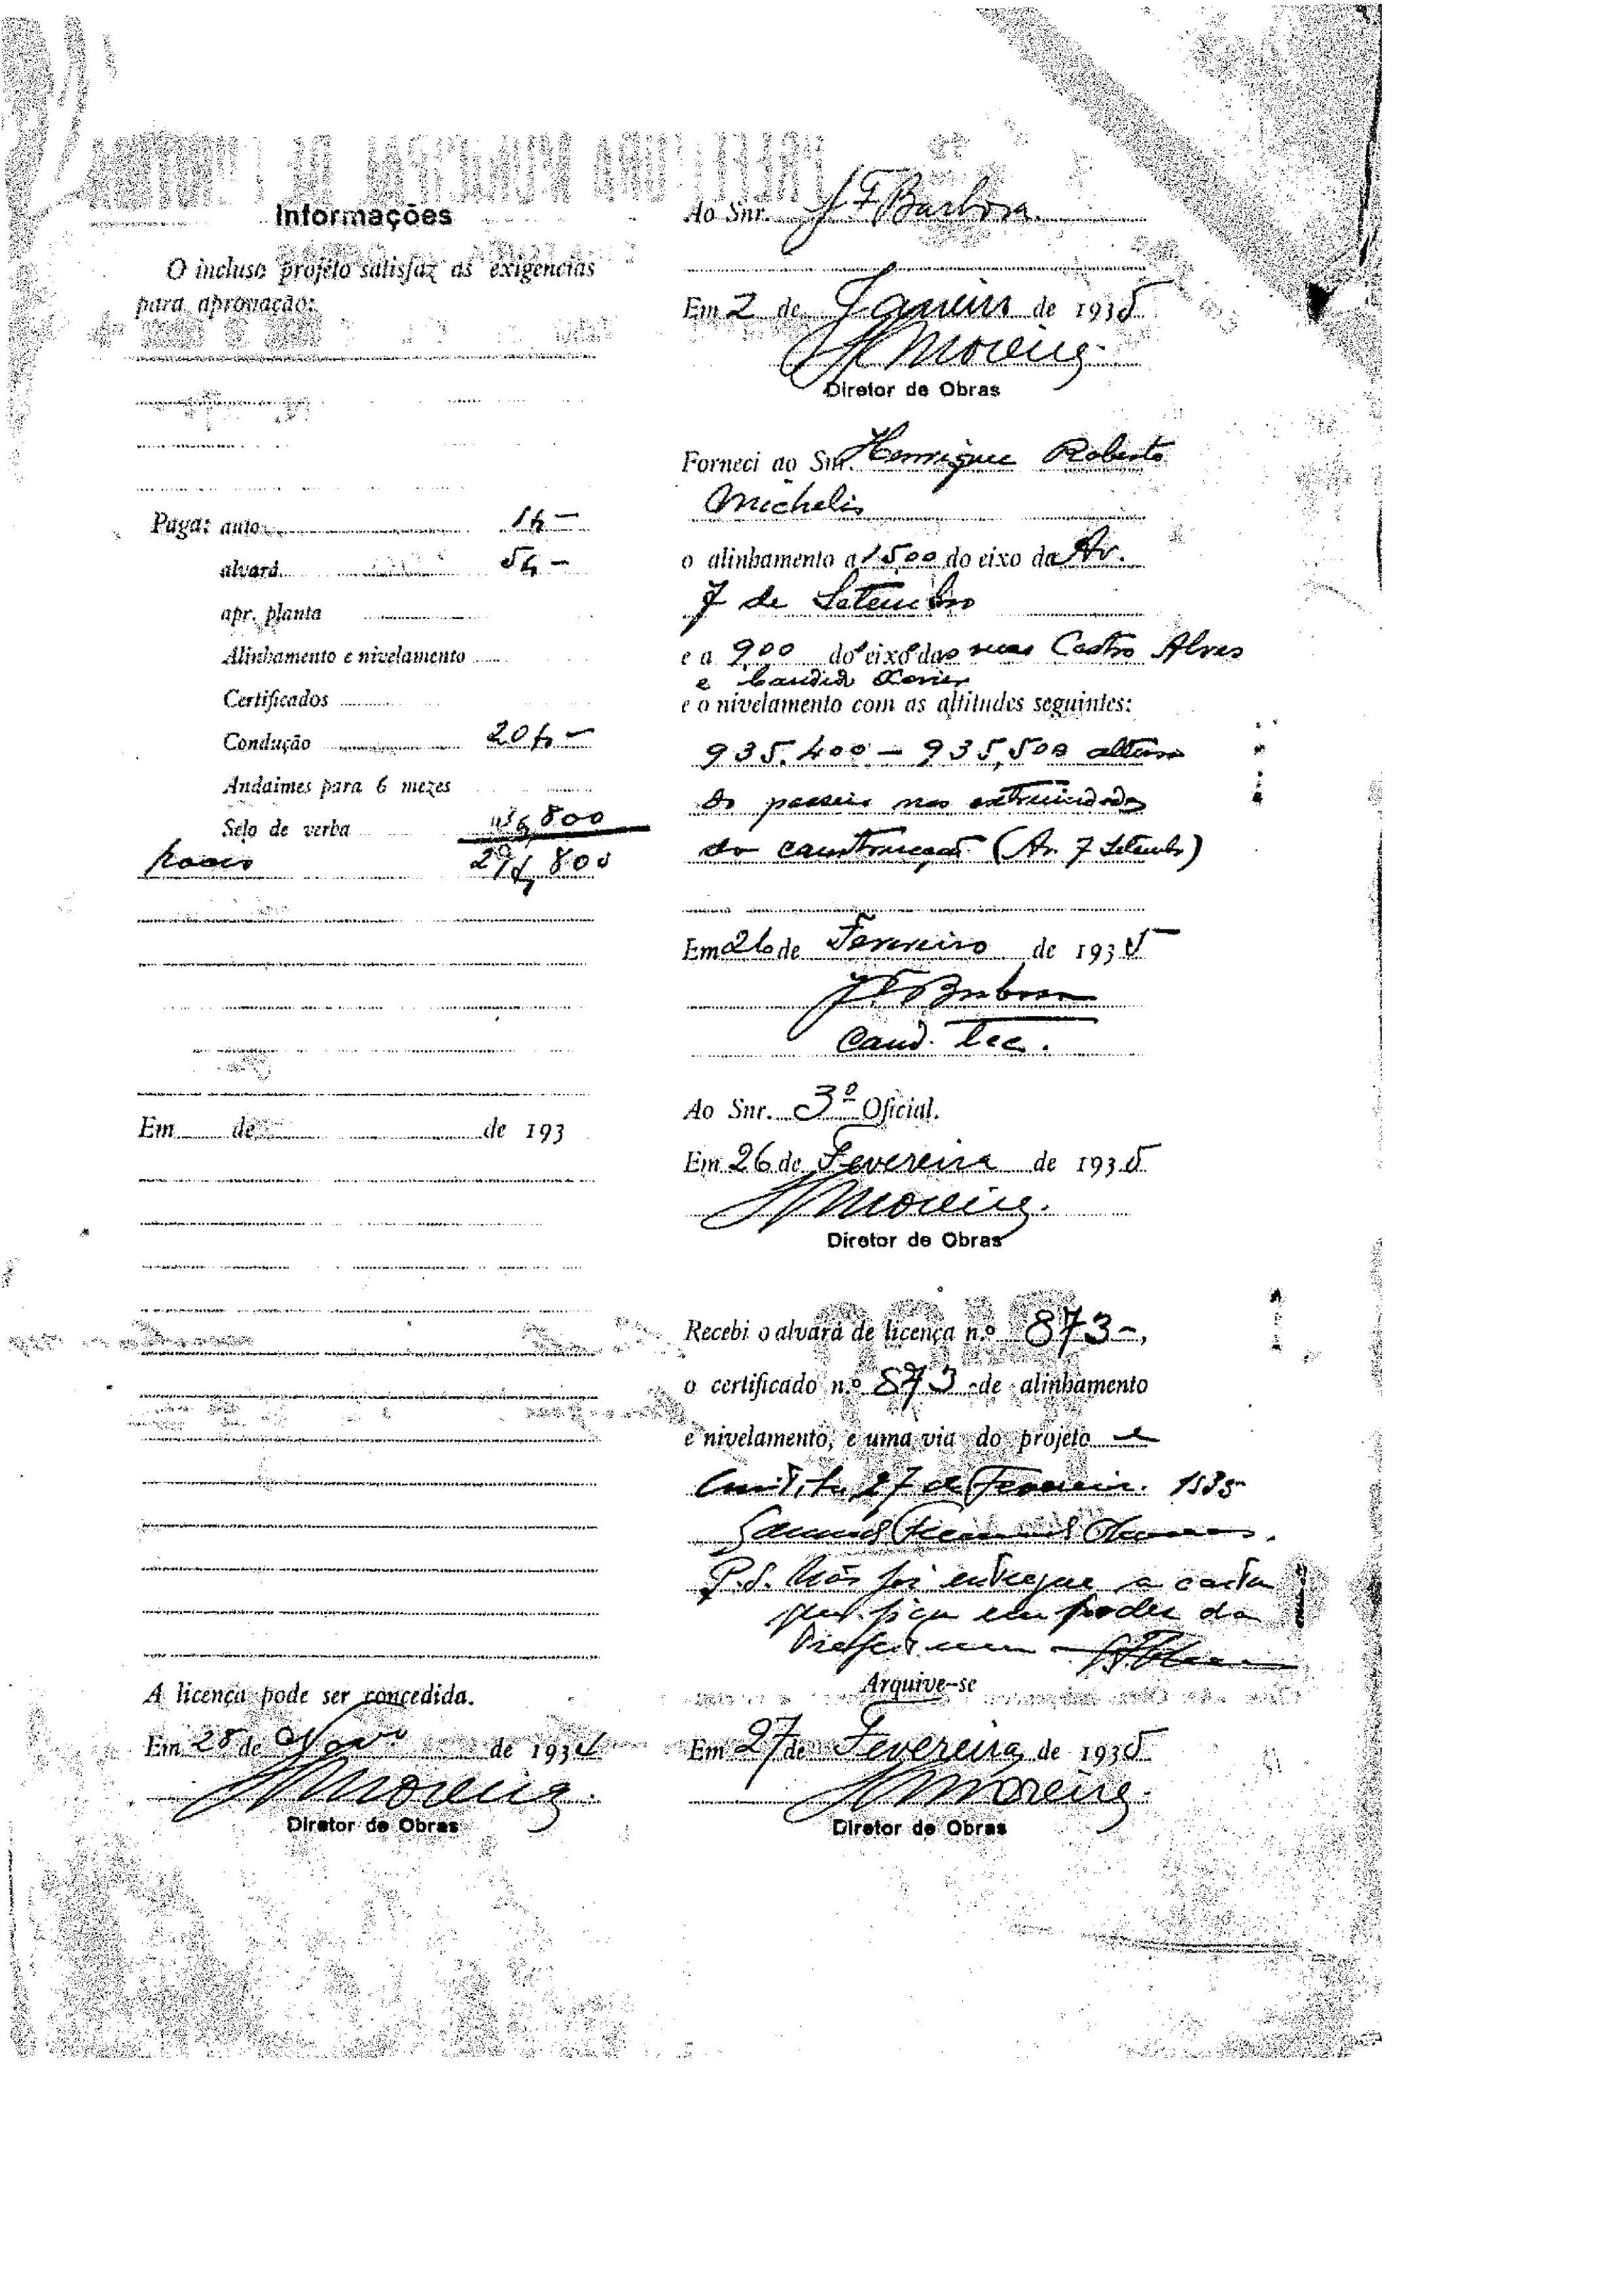 Informações
O incluso projéto satisfaz as exigencias
para aprovação:
Paga: auto 1$—
alvará 5$—
apr. planta
Alinhamento e nivelamento
Certificados
Condução 20$—
Andaimes para 6 mezes
Selo de verba $800
29$800
Em de de 193
A licença pode ser concedida.
Em 28 de Nov de 1934
Moreira
Diretor de Obras
Ao Snr. J F Barbosa
Em 2 de Janeiro de 1935
Moreira
Diretor de Obras
Forneci ao Snr. Henrique Roberto
Michelis
o alinhamento a 1500 do eixo da Av.
7 de Setembro
e a 900 do eixo das ruas Castro Alves
e Candido Xavier
e o nivelamento com as altitudes seguintes:
935.400 — 935,500 altura
do passeio nas extremidades
da construcção (Av. 7 Setembro)
Em 26 de Fevereiro de 1935
J F Barbosa
Cond. Tec.
Ao Snr. 3º Oficial.
Em 26 de Fevereiro de 1935
Moreira
Diretor de Obras
Recebi o alvará de licença n.º 873-,
o certificado n.º 873 de alinhamento
e nivelamento, e uma via do projéto e
27 de Fevereiro 1935
P.S. Não foi entregue a carta
que fica em poder da
Arquive-se
Em 27 de Fevereiro de 1935
Moreira
Diretor de Obras